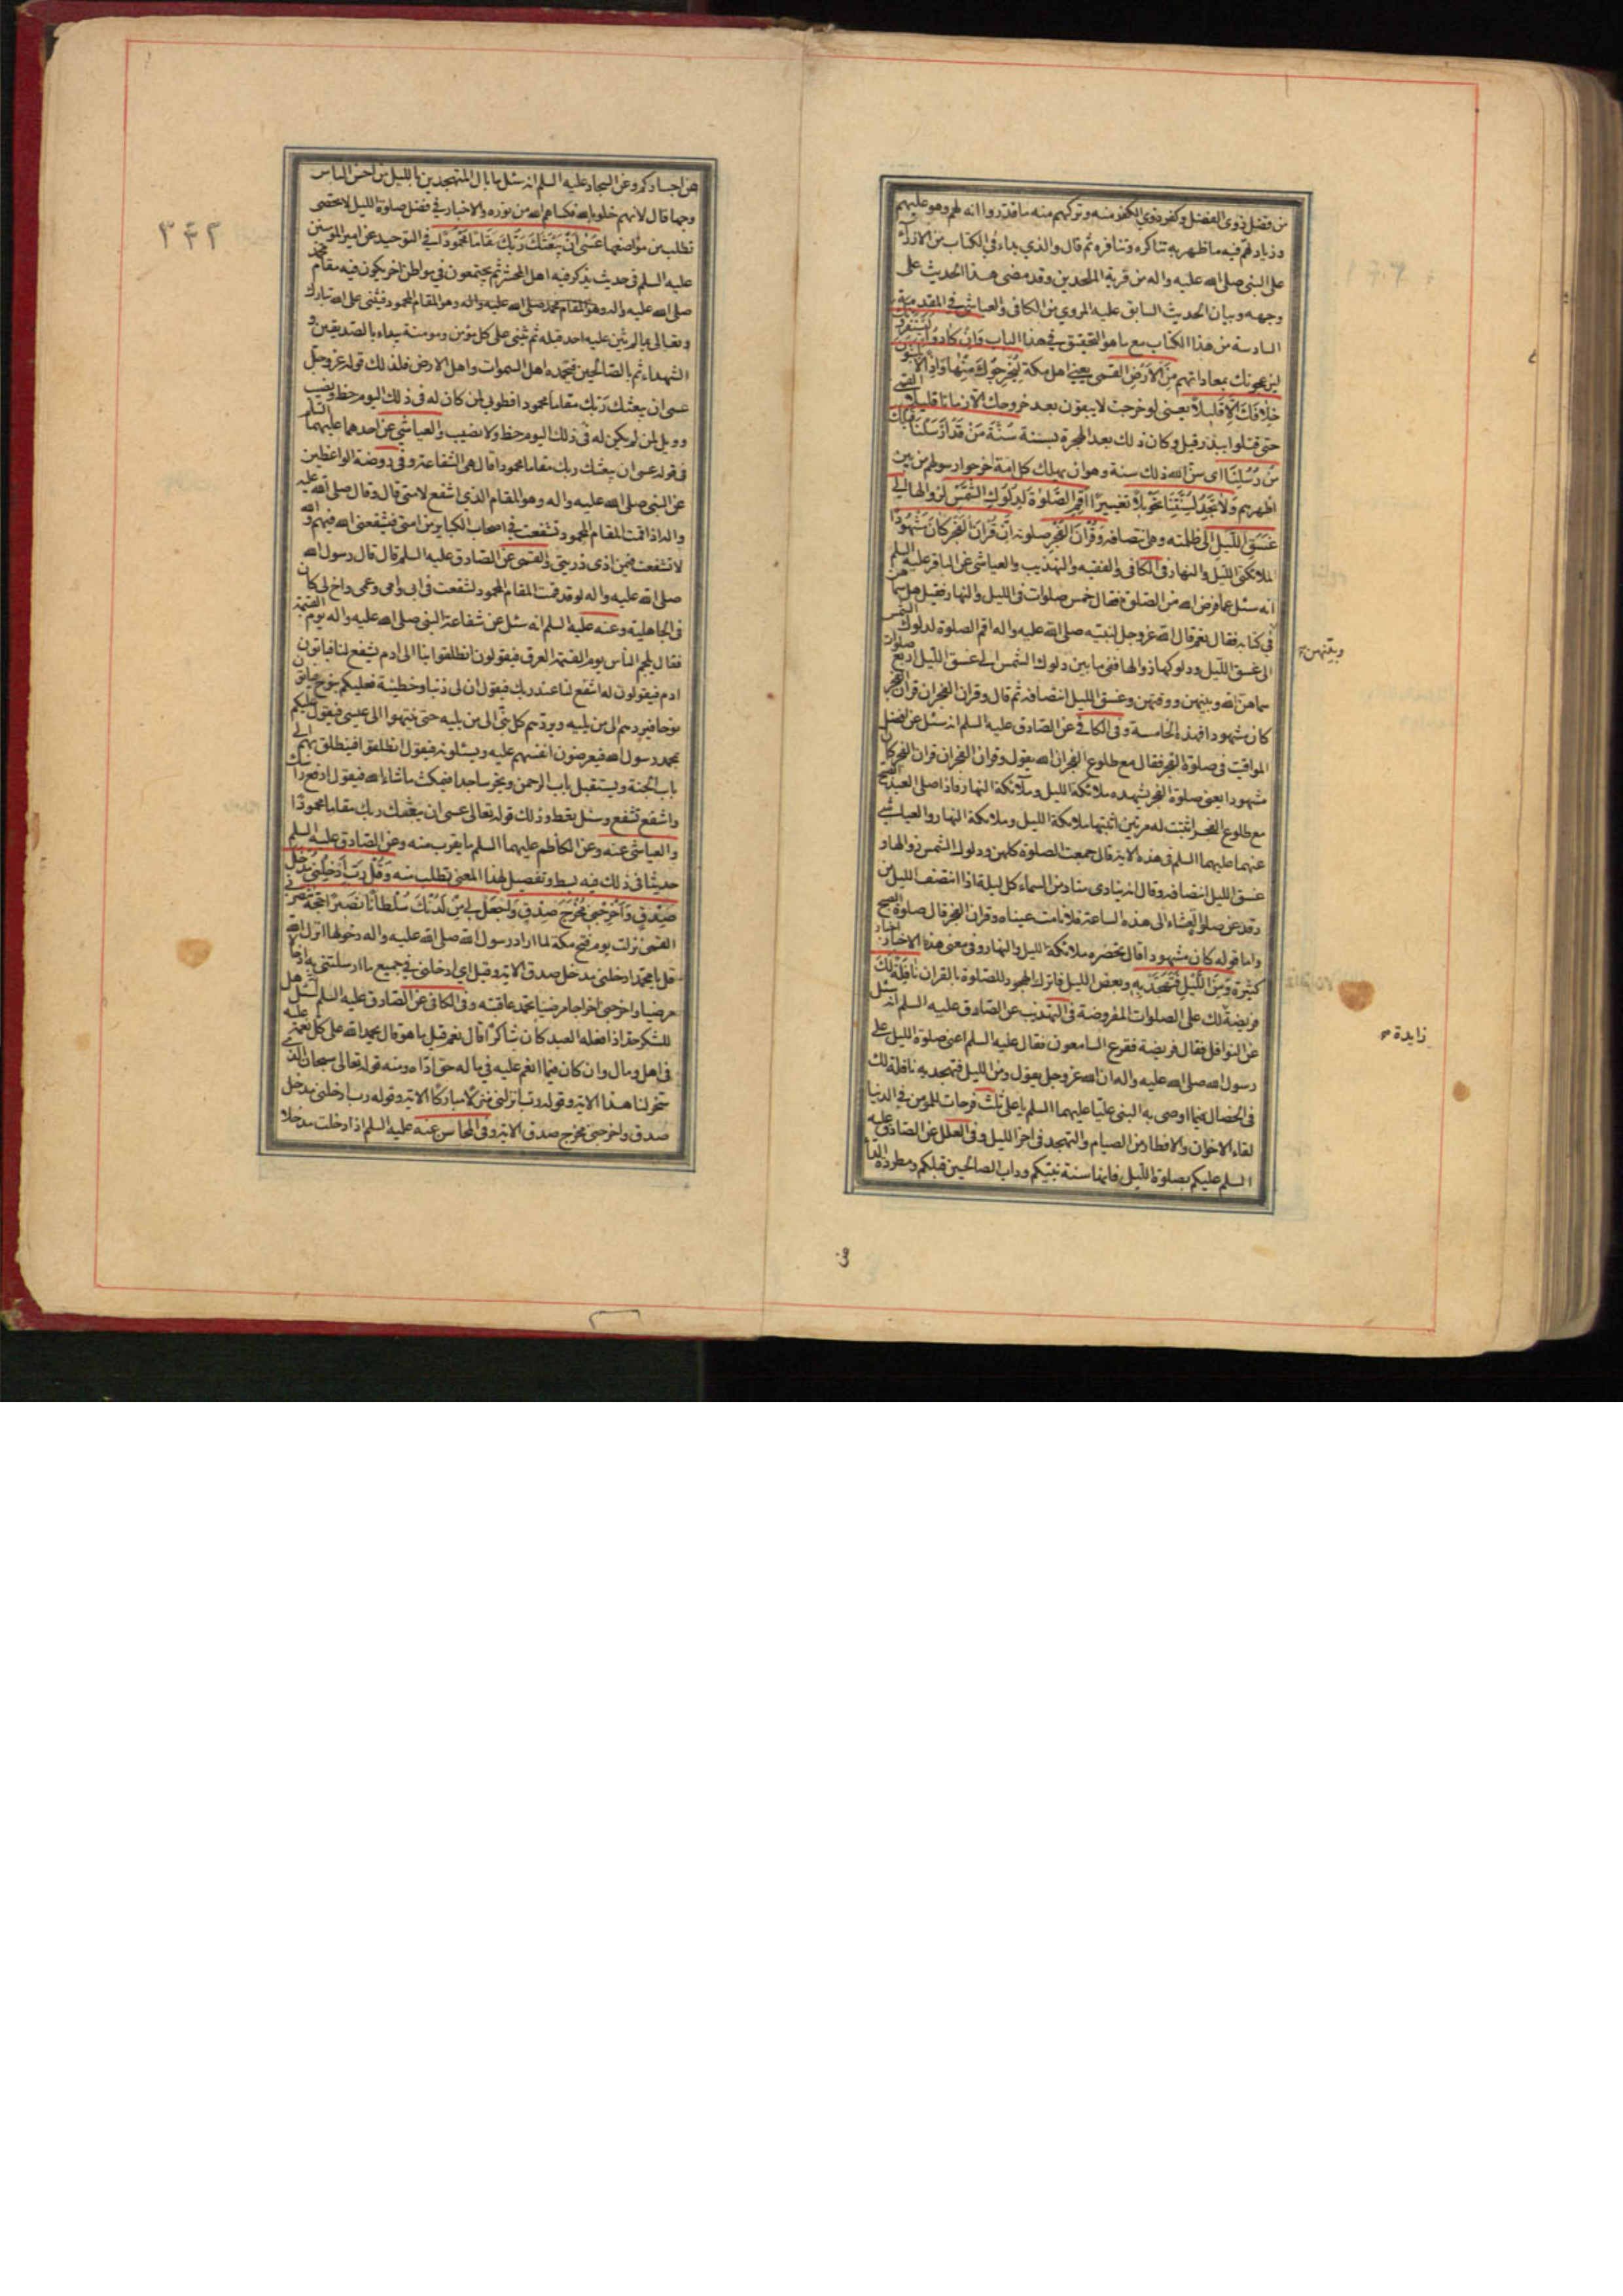 من فضل ذوى الفضل وكفر ذوى الكفر منه وتركهم منه ما قدروا انه لهم وهو عليهم
وزيادتهم فيه ما ظهر به تناكره وتنافره ثم قال والذي بداء في الكتاب من الازراء
على النبى صلى الله عليه واله من فرية الملحدين وقد مضى هذا الحديث على
وجهه وبيان الحديث السابق عليه المروي من الكافى والعياشى في المقدمة
السادسة من هذا الكتاب مع ما هو التحقيق في هذا الباب وَاِنْ كادُوا لَيَسْتَفِزُّونَكَ
ليزعجونك بمعاداتهم مِنَ الْاَرْضِ القمى يعنى اهل مكة لِيُخْرِجُوكَ مِنْها وَاِذاً لا يَلْبَثُونَ
خِلافَكَ اِلّا قَليلاً يعنى لو خرجت لا يبقون بعد خروجك الا زمانا قليلا القمى
حتى قتلوا ببدر وقيل وكان ذلك بعد الهجرة بسنة سُنَّةَ مَنْ قَدْ اَرْسَلْنا قَبْلَكَ
مِنْ رُسُلِنا اى سن الله ذلك سنة وهو ان يهلك كل امة اخرجوا رسولهم من بين
اظهرهم وَلا تَجِدُ لِسُنَّتِنا تَحْويلاً تغييرا اَقِمِ الصَّلوةَ لِدُلُوكِ الشَّمْسِ لزوالها اِلى
غَسَقِ اللَّيْلِ الى ظلمته وهى انتصافه وَقُرْآنَ الْفَجْرِ صلوته اِنَّ قُرْآنَ الْفَجْرِ كانَ مَشْهُوداً
الملائكة الليل والنهار فى الكافى والفقيه والتهذيب والعياشى عن الباقر عليه السلم
انه سئل عما فرض الله من الصلوة فقال خمس صلوات فى الليل والنهار فقيل هل سماهن
فى كتابه فقال نعم قال الله عز وجل لنبيه صلى الله عليه واله اقم الصلوة لدلوك الشمس
الى غسق الليل ودلوكها زوالها ففى ما بين دلوك الشمس الى غسق الليل اربع صلوات
سماهن الله وبينهن ووقتهن وغسق الليل انتصافه ثم قال وقران الفجر ان قران الفجر
كان مشهودا فهذه الخامسة وفى الكافى عن الصادق عليه السلم انه سئل عن افضل
المواقيت فى صلوة الفجر فقال مع طلوع الفجر ان الله يقول وقران الفجر ان قران الفجر كان
مشهودا يعنى صلوة الفجر تشهده ملائكة الليل وملائكة النهار فاذا صلى العبد الصبح
مع طلوع الفجر اثبتت له مرتين اثبتها ملائكة الليل وملائكة النهار والعياشى
عنهما عليهما السلم فى هذه الاية قال جمعت الصلوة كلهن ودلوك الشمس زوالها و
غسق الليل انتصافه وقال انه ينادى مناد من السماء كل ليلة اذا انتصف الليل من
رقد عن صلوة العشاء الى هذه الساعة فلا نامت عيناه وقران الفجر قال صلوة الصبح
واما قوله كان مشهودا قال تحضره ملائكة الليل والنهار وفى معنى هذه الاخبار اخبار
كثيرة وَمِنَ اللَّيْلِ فَتَهَجَّدْ بِه وبعض الليل فاترك الهجود للصلوة بالقران نافِلَةً لَكَ
فريضة لك على الصلوات المفروضة فى التهذيب عن الصادق عليه السلم انه سئل
عن النوافل فقال فريضة ففزع السامعون فقال عليه السلم اعنى صلوة الليل على
رسول الله صلى الله عليه واله ان الله عز وجل يقول ومن الليل فتهجد به نافلة لك
فى الخصال فيما اوصى به النبى عليا عليهما السلم يا على ثلث فرحات للمؤمن فى الدنيا
لقاء الاخوان والافطار من الصيام والتهجد فى اخر الليل وفى العلل عن الصادق عليه
السلم عليكم بصلوة الليل فانها سنة نبيكم وداب الصالحين قبلكم ومطردة الداء
وبينهن
زايدة
عن اجسادكم وعن السجاد عليه السلم انه سئل ما بال المتهجدين بالليل من احسن الناس
وجها قال لانهم خلوا بالله فكساهم الله من نوره والاخبار في فضل صلوة الليل لا تحصى
تطلب من مواضعها عَسى اَنْ يَبْعَثَكَ رَبُّكَ مَقاماً مَحْمُوداً في التوحيد عن امير المؤمنين
عليه السلم فى حديث يذكر فيه اهل المحشر ثم يجتمعون في موطن اخر يكون فيه مقام محمد
صلى الله عليه واله وهو المقام المحمود فيثنى على الله تبارك
وتعالى بما لم يثن عليه احد قبله ثم يثنى على كل مؤمن ومومنة يبداء بالصديقين و
الشهداء ثم بالصالحين فتحمده اهل السموات واهل الارض فلذلك قوله عز وجل
عسى ان يبعثك ربك مقاما محمودا فطوبى لمن كان له فى ذلك اليوم حظ ونصيب
وويل لمن لم يكن له فى ذلك اليوم حظ ولا نصيب والعياشى عن احدهما عليهما السلم
فى قوله عسى ان يبعثك ربك مقاما محمودا قال هى الشفاعة وفى روضة الواعظين
عن النبى صلى الله عليه واله وهو المقام الذى اشفع لامتى قال وقال صلى الله عليه
واله اذا قمت المقام المحمود تشفعت في اصحاب الكبائر من امتى فيشفعنى الله فيهم والله
لا تشفعت فيمن اذى ذريتى والقمى عن الصادق عليه السلم قال قال رسول الله
صلى الله عليه واله لو قد قمت المقام المحمود لشفعت فى ابى وامى وعمى واخ لى كان
فى الجاهلية وعنه عليه السلم انه سئل عن شفاعة النبى صلى الله عليه واله يوم القيمة
فقال يلجم الناس يوم القيمة العرق فيقولون انطلقوا بنا الى ادم يشفع لنا فياتون
ادم فيقولون له اشفع لنا عند ربك فيقول ان لى ذنبا وخطيئة فعليكم بنوح فياتون
نوحا فيردهم الى من يليه ويردهم كل نبى الى من يليه حتى ينتهوا الى عيسى فيقول عليكم
بمحمد رسول الله فيعرضون انفسهم عليه ويسئلونه فيقول انطلقوا فينطلق بهم الى
باب الجنة ويستقبل باب الرحمن ويخر ساجدا فيمكث ما شاء الله فيقول ارفع راسك
واشفع تشفع وسئل تعط وذلك قوله تعالى عسى ان يبعثك ربك مقاما محمودا
والعياشى عنه وعن الكاظم عليهما السلم ما يقرب منه وعن الصادق عليه السلم
حديثا فى ذلك فيه بسط وتفصيل لهذا المعنى يطلب منه وَقُلْ رَبِّ اَدْخِلْنى مُدْخَلَ
صِدْقٍ وَاَخْرِجْنى مُخْرَجَ صِدْقٍ وَاجْعَلْ لى مِنْ لَدُنْكَ سُلْطاناً نَصيراً حجة تنصرنى
القمى نزلت يوم فتح مكة لما اراد رسول الله صلى الله عليه واله دخولها انزل الله
قل يا محمد ادخلنى مدخل صدق الاية وقيل اى ادخلنى في جميع ما ارسلتنى به ادخالا
مرضيا واخرجنى اخراجا مرضيا تحمد عاقبته وفى الكافى عن الصادق عليه السلم سئل هل
للشكر حد اذا فعله العبد كان شاكرا قال نعم قيل ما هو قال يحمد الله على كل نعمة عليه
فى اهل ومال وان كان فيما انعم عليه في ماله حق اداه ومنه قوله تعالى سبحان الذى
سخر لنا هذا الاية وقوله رب انزلنى منزلا مباركا الاية وقوله رب ادخلنى مدخل
صدق واخرجنى مخرج صدق الاية وفى المحاسن عنه عليه السلم اذا دخلت مدخلا